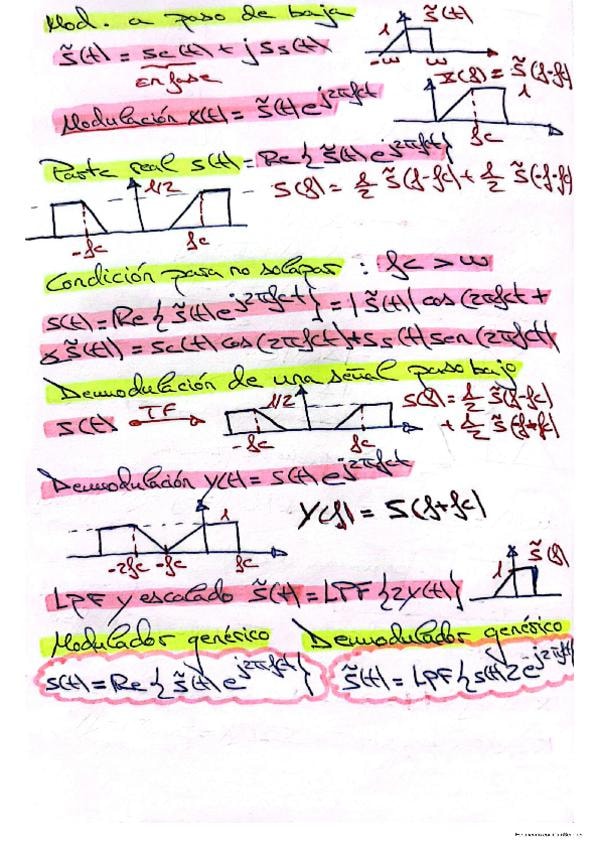 Mod. a paso de baja
s̃(t)
1
-w w
s̃(t) = sc(t) + j Ss(t)
en fase
X(f) = s̃(f-fc)
1
fc
Modulación x(t) = s̃(t) e^j2πfct
Parte real s(t) = Re{s̃(t) e^j2πfct}
1/2
S(f) = 1/2 s̃(f-fc) + 1/2 s̃(-f-fc)
-fc fc
Condición para no solapar : fc > w
s(t) = Re{s̃(t) e^j2πfct} = |s̃(t)| cos(2πfct +
∡ s̃(t)) = Sc(t) cos(2πfct) + Ss(t) sen(2πfct)
Demodulación de una señal paso bajo
s(t) TF 1/2 S(f) = 1/2 s̃(f-fc)
+ 1/2 s̃(f+fc)
-fc fc
Demodulación y(t) = s(t) e^j2πfct
Y(f) = S(f+fc)
1
-2fc -fc fc
LPF y escalado s̃(t) = LPF{2y(t)}
1 s̃(f)
Modulador genérico Demodulador genérico
s(t) = Re{s̃(t) e^j2πfct} s̃(t) = LPF{s(t) 2 e^-j2πfct}